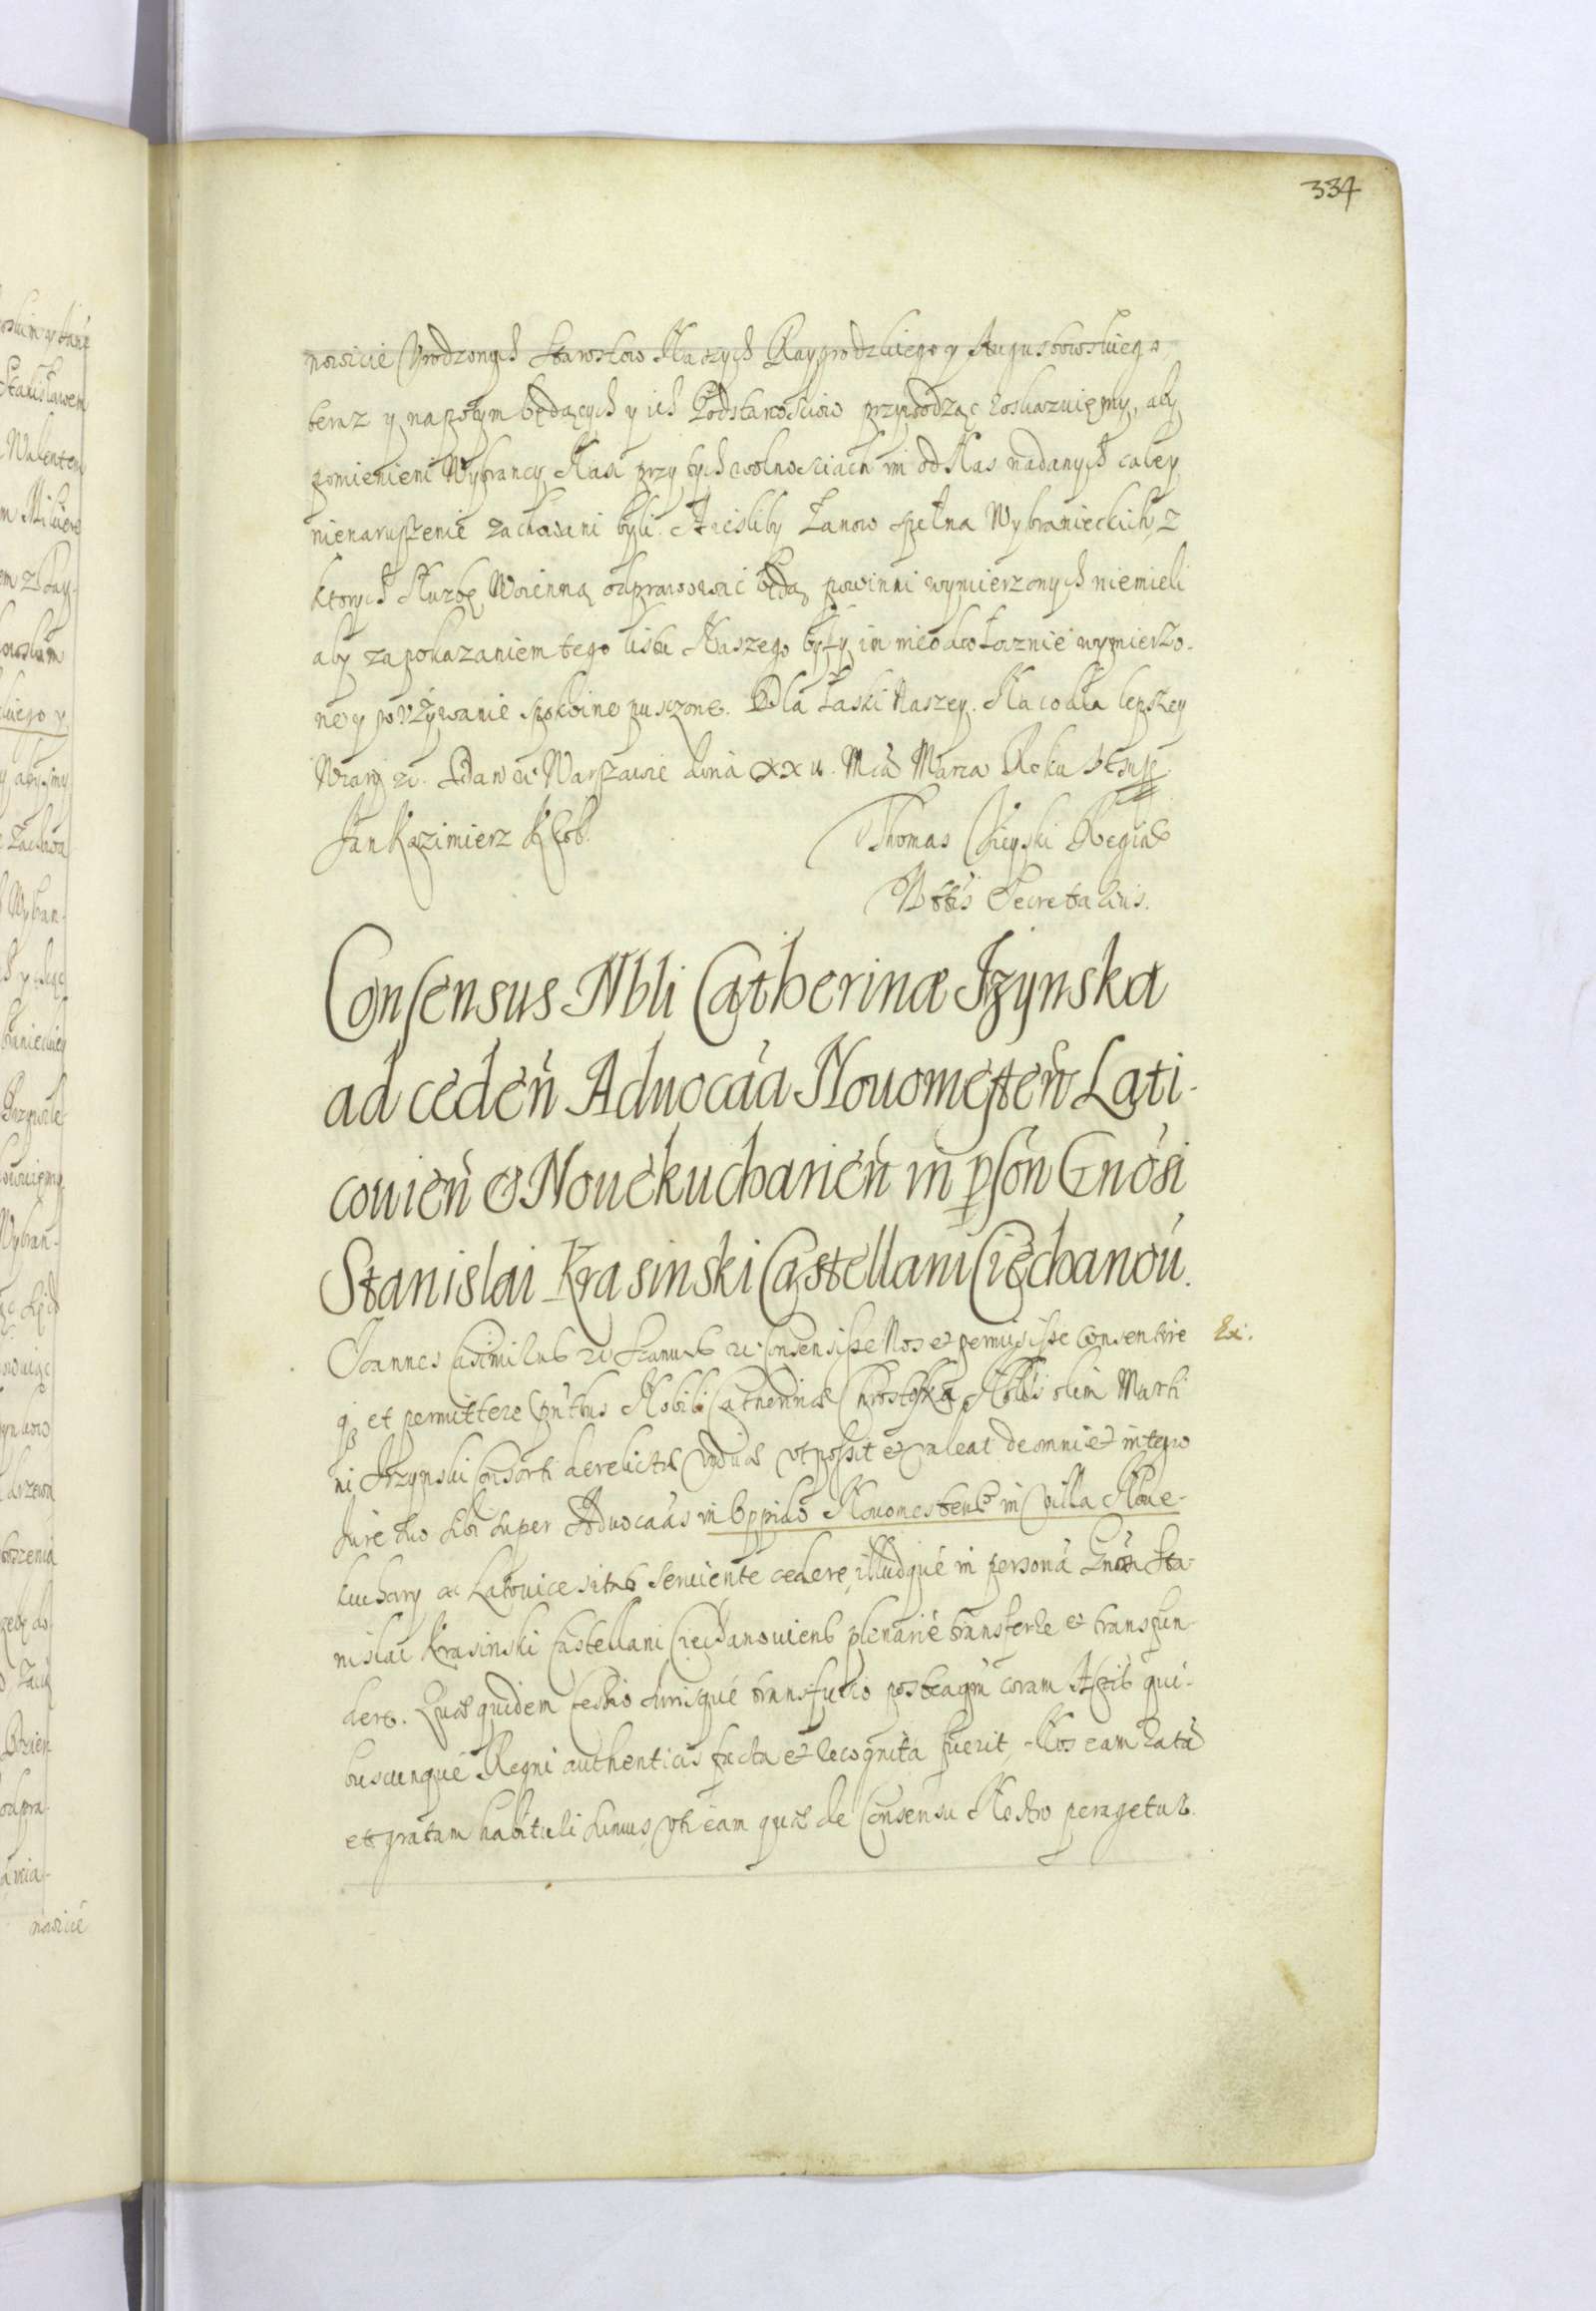 334
nowicie Vrodzonych Starostow Naszych Raygrodzkiego y Augustowskiego
teraz y napotym będących y ich Podstarościow przywodząc roskazuiemy, aby
pomienieni Wybrancy Nasi przy tych wolnosciach im od Nas nadanych caley
nienaruszenie zachowani byli. A iesliby Łanow spełna Wybranieckich, z
ktorych służbę Woienną odprawować będą powinni wymierzonych niemieli
aby za pokazaniem tego listu Naszego były im nieodwłocznie wymierzo-
ne y powżywanie spokoine puszczone. Dla łaski Naszey. Na co dla lepszey
Wiary etc. Dan w Warszawie dnia XXII. Mca Marca Roku
Jan Kazimierz Krol.
Thomas Regiae
Mttis Secretarius.
Consensus Nbli Catherinæ Jżynska
ad cedeń Aduocaá Nouomesteń Lati-
couień & Nouekucharień in pson Gnosi
Stanislai Krasinski Castellani Ciechanou.
Ex.
Joannes Casimirus etc Significamus etc Consensisse Nos et permisisse consentire
q et permittere pntbus Nobili Catherinæ Nblis olim Marti
ni Jżynski Consorti derelictæ viduæ vt possit et valeat de omni et integro
Jure suo sibi super Aduocaás in Oppido Nouomestens in villa Noue-
kuchary ac Latouice sitas seruiente cedere, illudqué in personá Gnosi Sta-
nislai Krasinski Castellani Ciechanouiens plenarié transferre et transfun-
dere. Quæ quidem Cessio Jurisqué transfusio posteaqm coram Actis qui-
buscunqué Regni authenticis facta et recognita fuerit, Nos eam ratá
et gratam habituri sumus, vti eam quæ de Consensu Nostro peragetur.